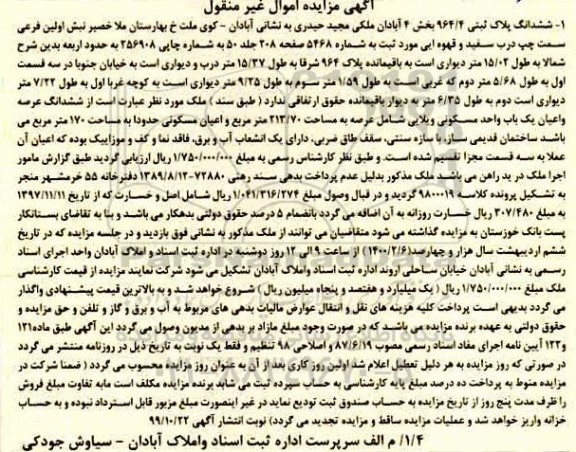 آگهی مزایده اموال غیر منقول
۱- ششدانگ پلاک ثبتی ۹۶۴/۴ بخش ۴ آبادان ملکی مجید حیدری به نشانی آبادان – کوی ملت خ بهارستان ملا خصیر نبش اولین فرعی
سمت چپ درب سفید و قهوه ایی مورد ثبت به شماره ۵۴۶۸ صفحه ۲۰۸ جلد ۵۰ به شماره چاپی ۲۵۶۹۰۸ به حدود اربعه بدین شرح
شمالا به طول ۱۵/۰۲ متر دیواری است به باقیمانده پلاک ۹۶۴ شرقا به طول ۱۵/۲۷ متر درب و دیواری است به خیابان جنوبا در سه قسمت
اول به طول ۵/۶۸ متر دوم که غربی است به طول ۱/۵۹ متر سوم به طول ۹/۲۵ متر دیواری است به کوچه غربا اول به طول ۷/۲۲ متر
دیواری است دوم به طول ۶/۳۵ متر به دیوار باقیمانده حقوق ارتفاقی ندارد ( طبق سند ) ملک مورد نظر عبارت است از ششدانگ عرصه
واعیان یک باب واحد مسکونی ویلایی شامل عرصه به مساحت ۲۱۳/۷۰ متر مربع و اعیان مسکونی حدودا به مساحت ۱۷۰ متر مربع می
باشد ساختمان قدیمی ساز، با سازه سنتی، سقف طاق ضربی، دارای یک انشعاب آب و برق، فاقد نما و کف و موزاییک بوده که اعیان آن
عملا به سه قسمت مجزا تقسیم شده است. و طبق نظر کارشناس رسمی به مبلغ ۱/۷۵۰/۰۰۰/۰۰۰ ریال ارزیابی گردید طبق گزارش مامور
اجرا ملک در ید راهن می باشد ملک مذکور بدلیل عدم پرداخت بدهی سند رهنی ۷۲۸۸۰-۱۳۸۹/۸/۱۲ دفترخانه ۵۵ خرمشهر منجر
به تشکیل پرونده کلاسه ۹۸۰۰۰۱۹ گردید و در قبال وصول مبلغ ۱/۰۴۱/۳۱۶/۲۷۴ ریال شامل اصل و خسارت که از تاریخ ۱۳۹۷/۱۱/۱۱
به مبلغ ۳۰۷/۴۸۰ ریال خسارت روزانه به آن اضافه می گردد بانضمام ۵ درصد حقوق دولتی بدهکار می باشد و بنا به تقاضای بستانکار
پست بانک خوزستان به مزایده گذاشته می شود متقاضیان می توانند از ملک مذکور به نشانی فوق بازدید و در جلسه مزایده که در تاریخ
ششم اردیبهشت سال هزار و چهارصد(۱۴۰۰/۲/۶) از ساعت ۹ الی ۱۲ روز دوشنبه در اداره ثبت اسناد و املاک آبادان واحد اجرای اسناد
رسمی به نشانی آبادان خیابان ساحلی اروند اداره ثبت اسناد واملاک آبادان تشکیل می شود شرکت نمایند مزایده از قیمت کارشناسی
ملک مبلغ ۱/۷۵۰/۰۰۰/۰۰۰ ریال ( یک میلیارد و هفتصد و پنجاه میلیون ریال ) شروع خواهد شد و به بالاترین قیمت پیشنهادی واگذار
می گردد بدیهی است پرداخت کلیه هزینه های نقل و انتقال عوارض مالیات بدهی های مربوط به آب و برق و گاز و تلفن و حق مزایده و
حقوق دولتی به عهده برنده مزایده می باشد که در صورت وجود مبلغ مازاد بر بدهی از مدیون وصول می گردد این آگهی طبق ماده۱۲۱
و۱۲۲ آیین نامه اجرای مفاد اسناد رسمی مصوب ۸۷/۶/۱۹ و اصلاحی ۹۸ تنظیم و فقط یک نوبت به تاریخ ذیل در روزنامه منتشر می گردد
در صورتی که روز مزایده به هر دلیل تعطیل اعلام شد اولین روز کاری بعد از آن به عنوان روز مزایده محسوب می گردد ( ضمنا شرکت در
مزایده منوط به پرداخت ده درصد مبلغ پایه کارشناسی به حساب سپرده ثبت می شابد برنده مزایده مکلف است مابه تفاوت مبلغ فروش
را ظرف مدت پنج روز از تاریخ مزایده به حساب صندوق ثبت تودیع نماید در غیر اینصورت مبلغ مزبور قابل استرداد نبوده و به حساب
خزانه واریز خواهد شد و عملیات مزایده ساقط و مزایده تجدید می گردد) نوبت انتشار آگهی ۹۹/۱۰/۲۲
۱/۴/ م الف سرپرست اداره ثبت اسناد واملاک آبادان – سیاوش جودکی